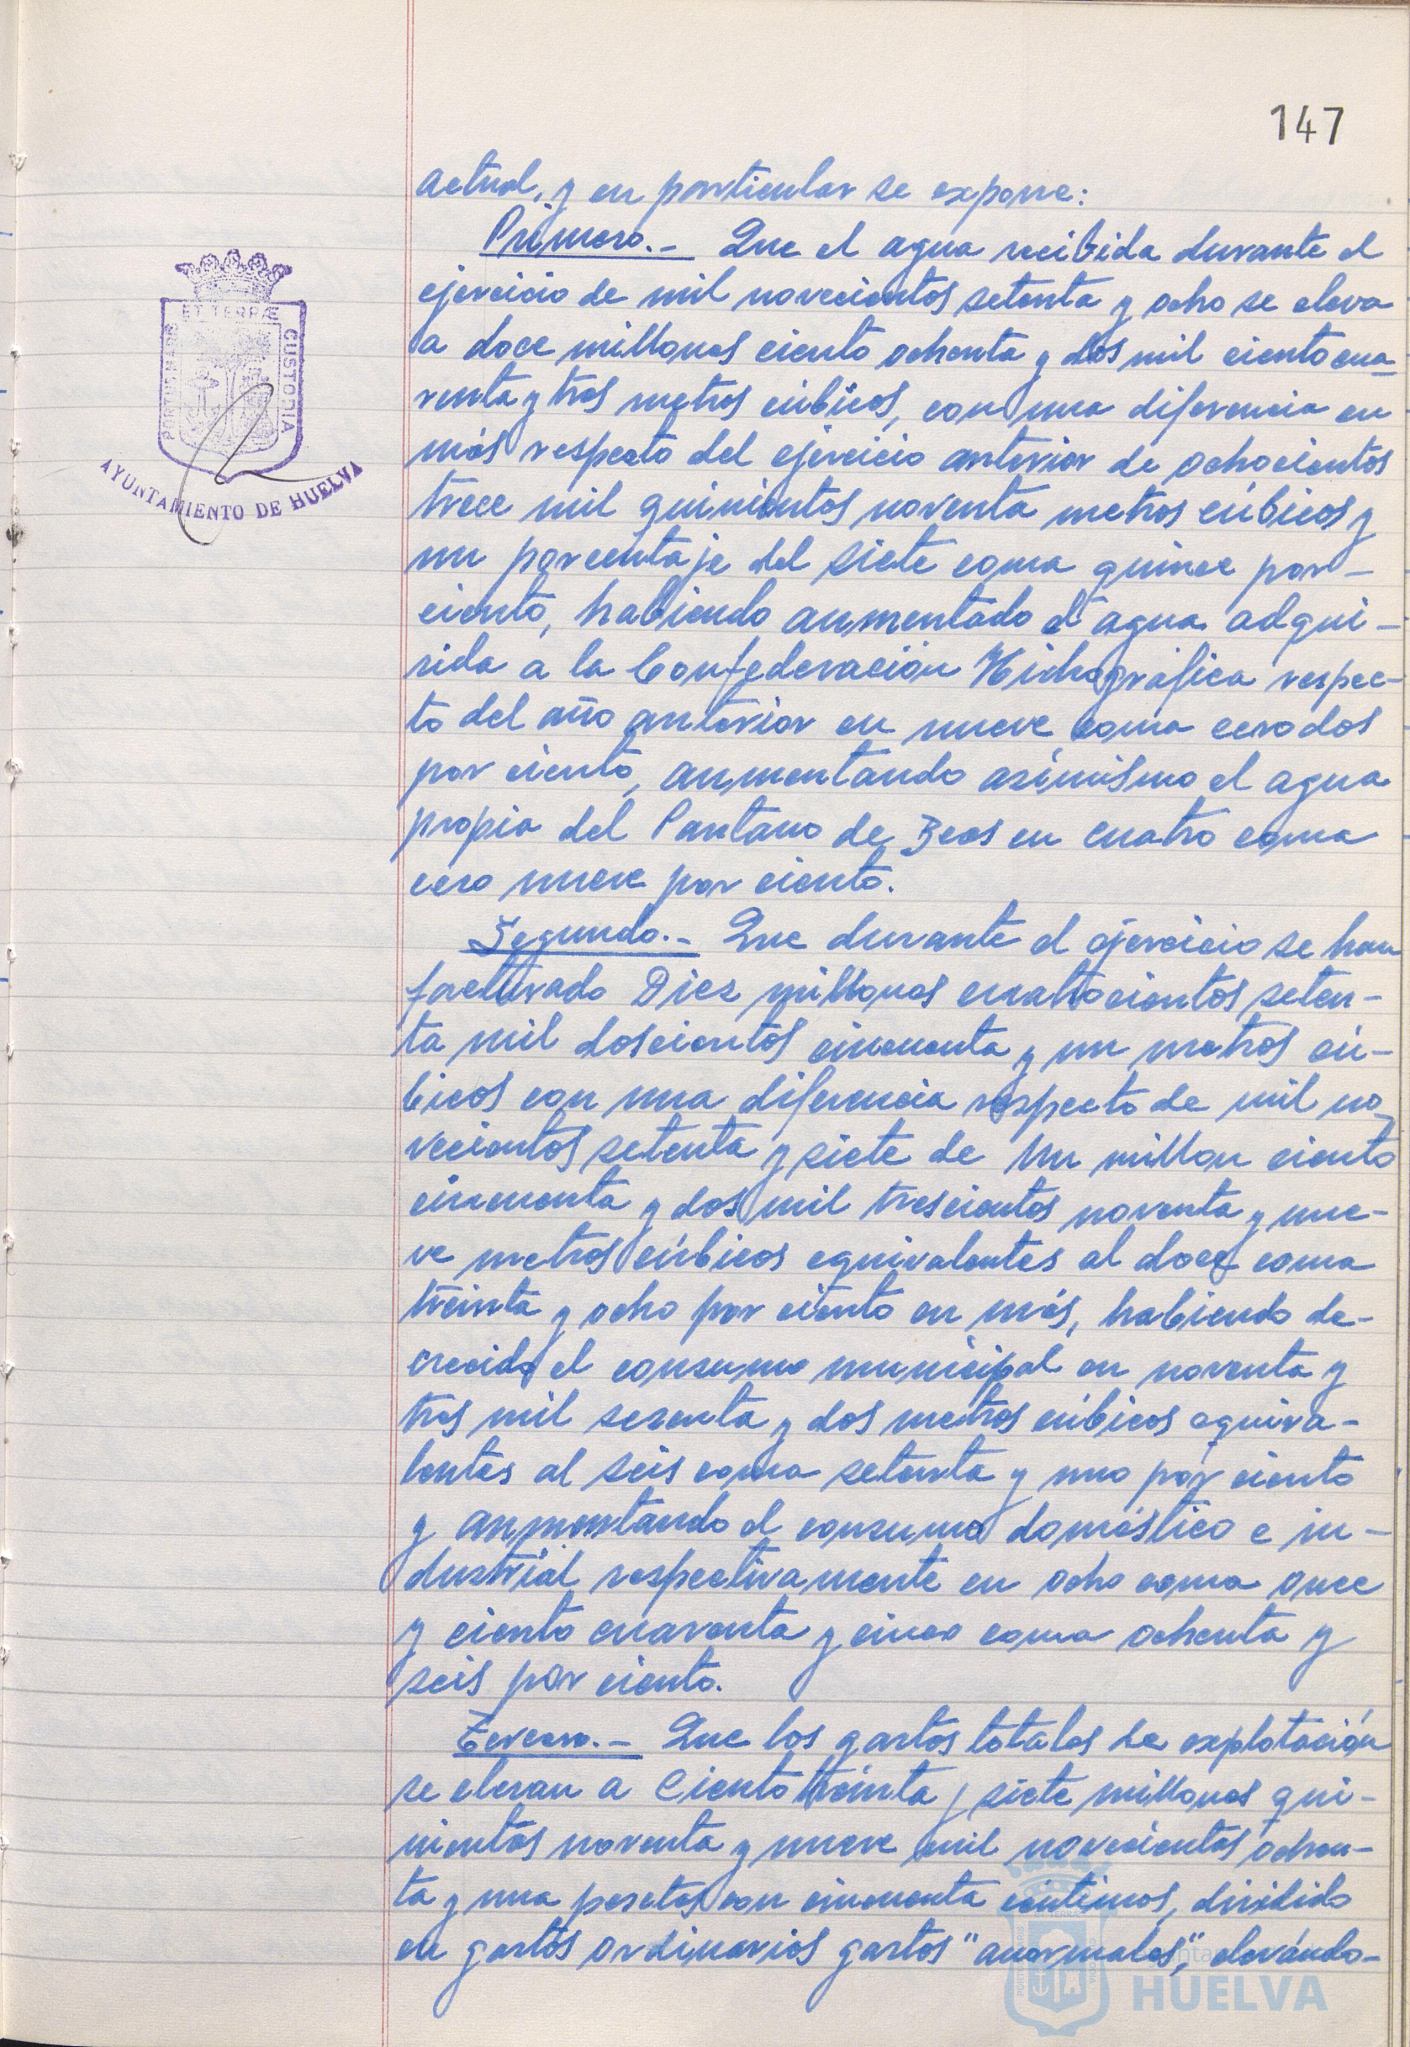 147
actual, y en particular se expone:
Primero.- Que el agua recibida durante el
ejercicio de mil novecientos setenta y ocho se eleva
a doce millones ciento ochenta y dos mil ciento cua-
renta y tres metros cúbicos, con una diferencia en
más respecto del ejercicio anterior de ochocientos
trece mil quinientos noventa metros cúbicos y
un porcentaje del siete coma quince por-
ciento, habiendo aumentado el agua adqui-
rida a la Confederación Hidrográfica respec-
to del año anterior en nueve coma cero dos
por ciento, aumentando asímismo el agua
propia del Pantano de Beas en cuatro coma
cero nueve por ciento.
Segundo.- Que durante el ejercicio se han
facturado Diez millones cuatrocientos seten-
ta mil doscientos cincuenta y un metros cú-
bicos con una diferencia respecto de mil no-
vecientos setenta y siete de Un millon ciento
cincuenta y dos mil trescientos noventa y nue-
ve metros cúbicos equivalentes al doce coma
treinta y ocho por ciento en más, habiendo de-
crecido el consumo municipal en noventa y
tres mil sesenta y dos metros cúbicos equiva-
lentes al seis coma setenta y uno por ciento
y aumentando el consumo doméstico e in-
dustrial respectivamente en ocho coma once
y ciento cuarenta y cinco coma ochenta y
seis por ciento.
Tercero.- Que los gastos totales de explotación
se elevan a Ciento treinta y siete millones qui-
nientos noventa y nueve mil novecientos ochen-
ta y una pesetas con cincuenta céntimos, dividido
en gastos ordinarios gastos "anormales", elevándo-
PORTUS MARIS
ET TERRÆ
CUSTODIA
AYUNTAMIENTO DE HUELVA
HUELVA